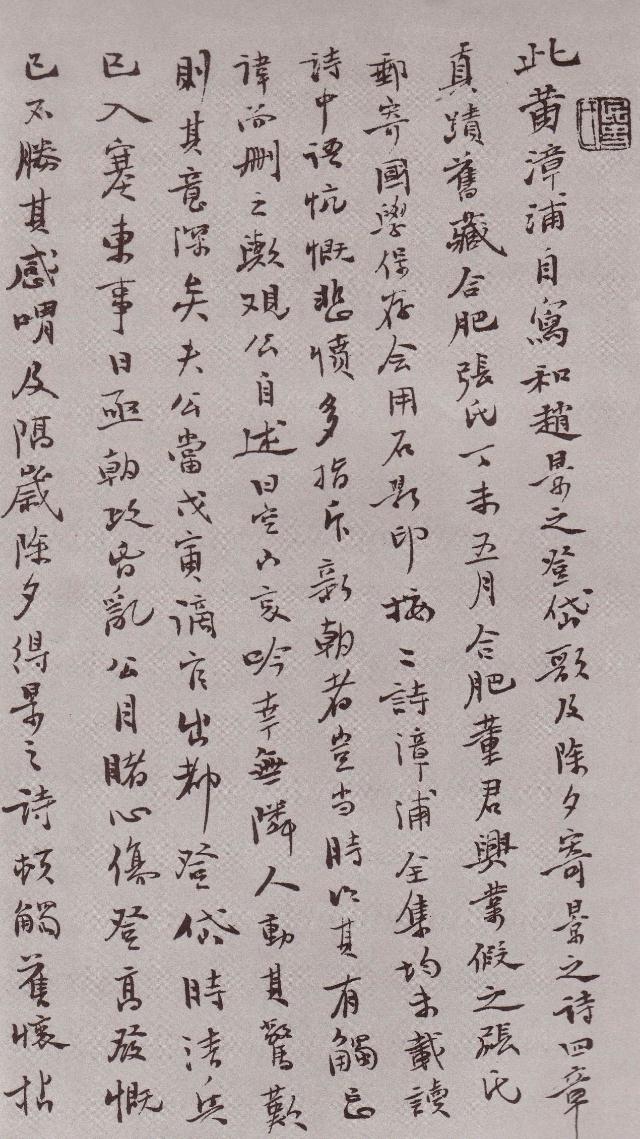 此黄漳浦自寫和趙景之登岱歌及除夕寄景之詩四章
真蹟舊藏合肥張氏丁未五月合肥董君興業假之張氏
郵寄國學保存会用石影印按二詩漳浦全集均未載讀
詩中語忼慨悲憤多指斥新朝者豈当時以其有觸忌
諱而刪之歟又觀公自述曰空山哀吟幸無隣人動其驚歎
則其意深矣夫公當戊寅謫官出都登岱時清兵
已入塞東事日亟朝政昏亂公目睹心傷登高發慨
已不勝其感喟及隔歲除夕得景之詩頓觸舊懷拈